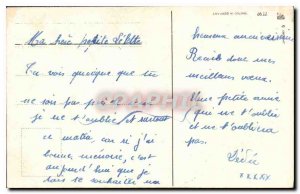 Ma chère petite Lilette
Tu vois quoique que tu
ne sois pas près
je ne t'oublie et surtout
ce matin, car si j'ai
bonne mémoire, c'est
aujourd'hui que je
dois te souhaiter un
heureux anniversaire
Reçois donc mes
meilleurs vœux.
Une petite amie
qui ne t'oublie
et ne t'oubliera
pas.
Dédée